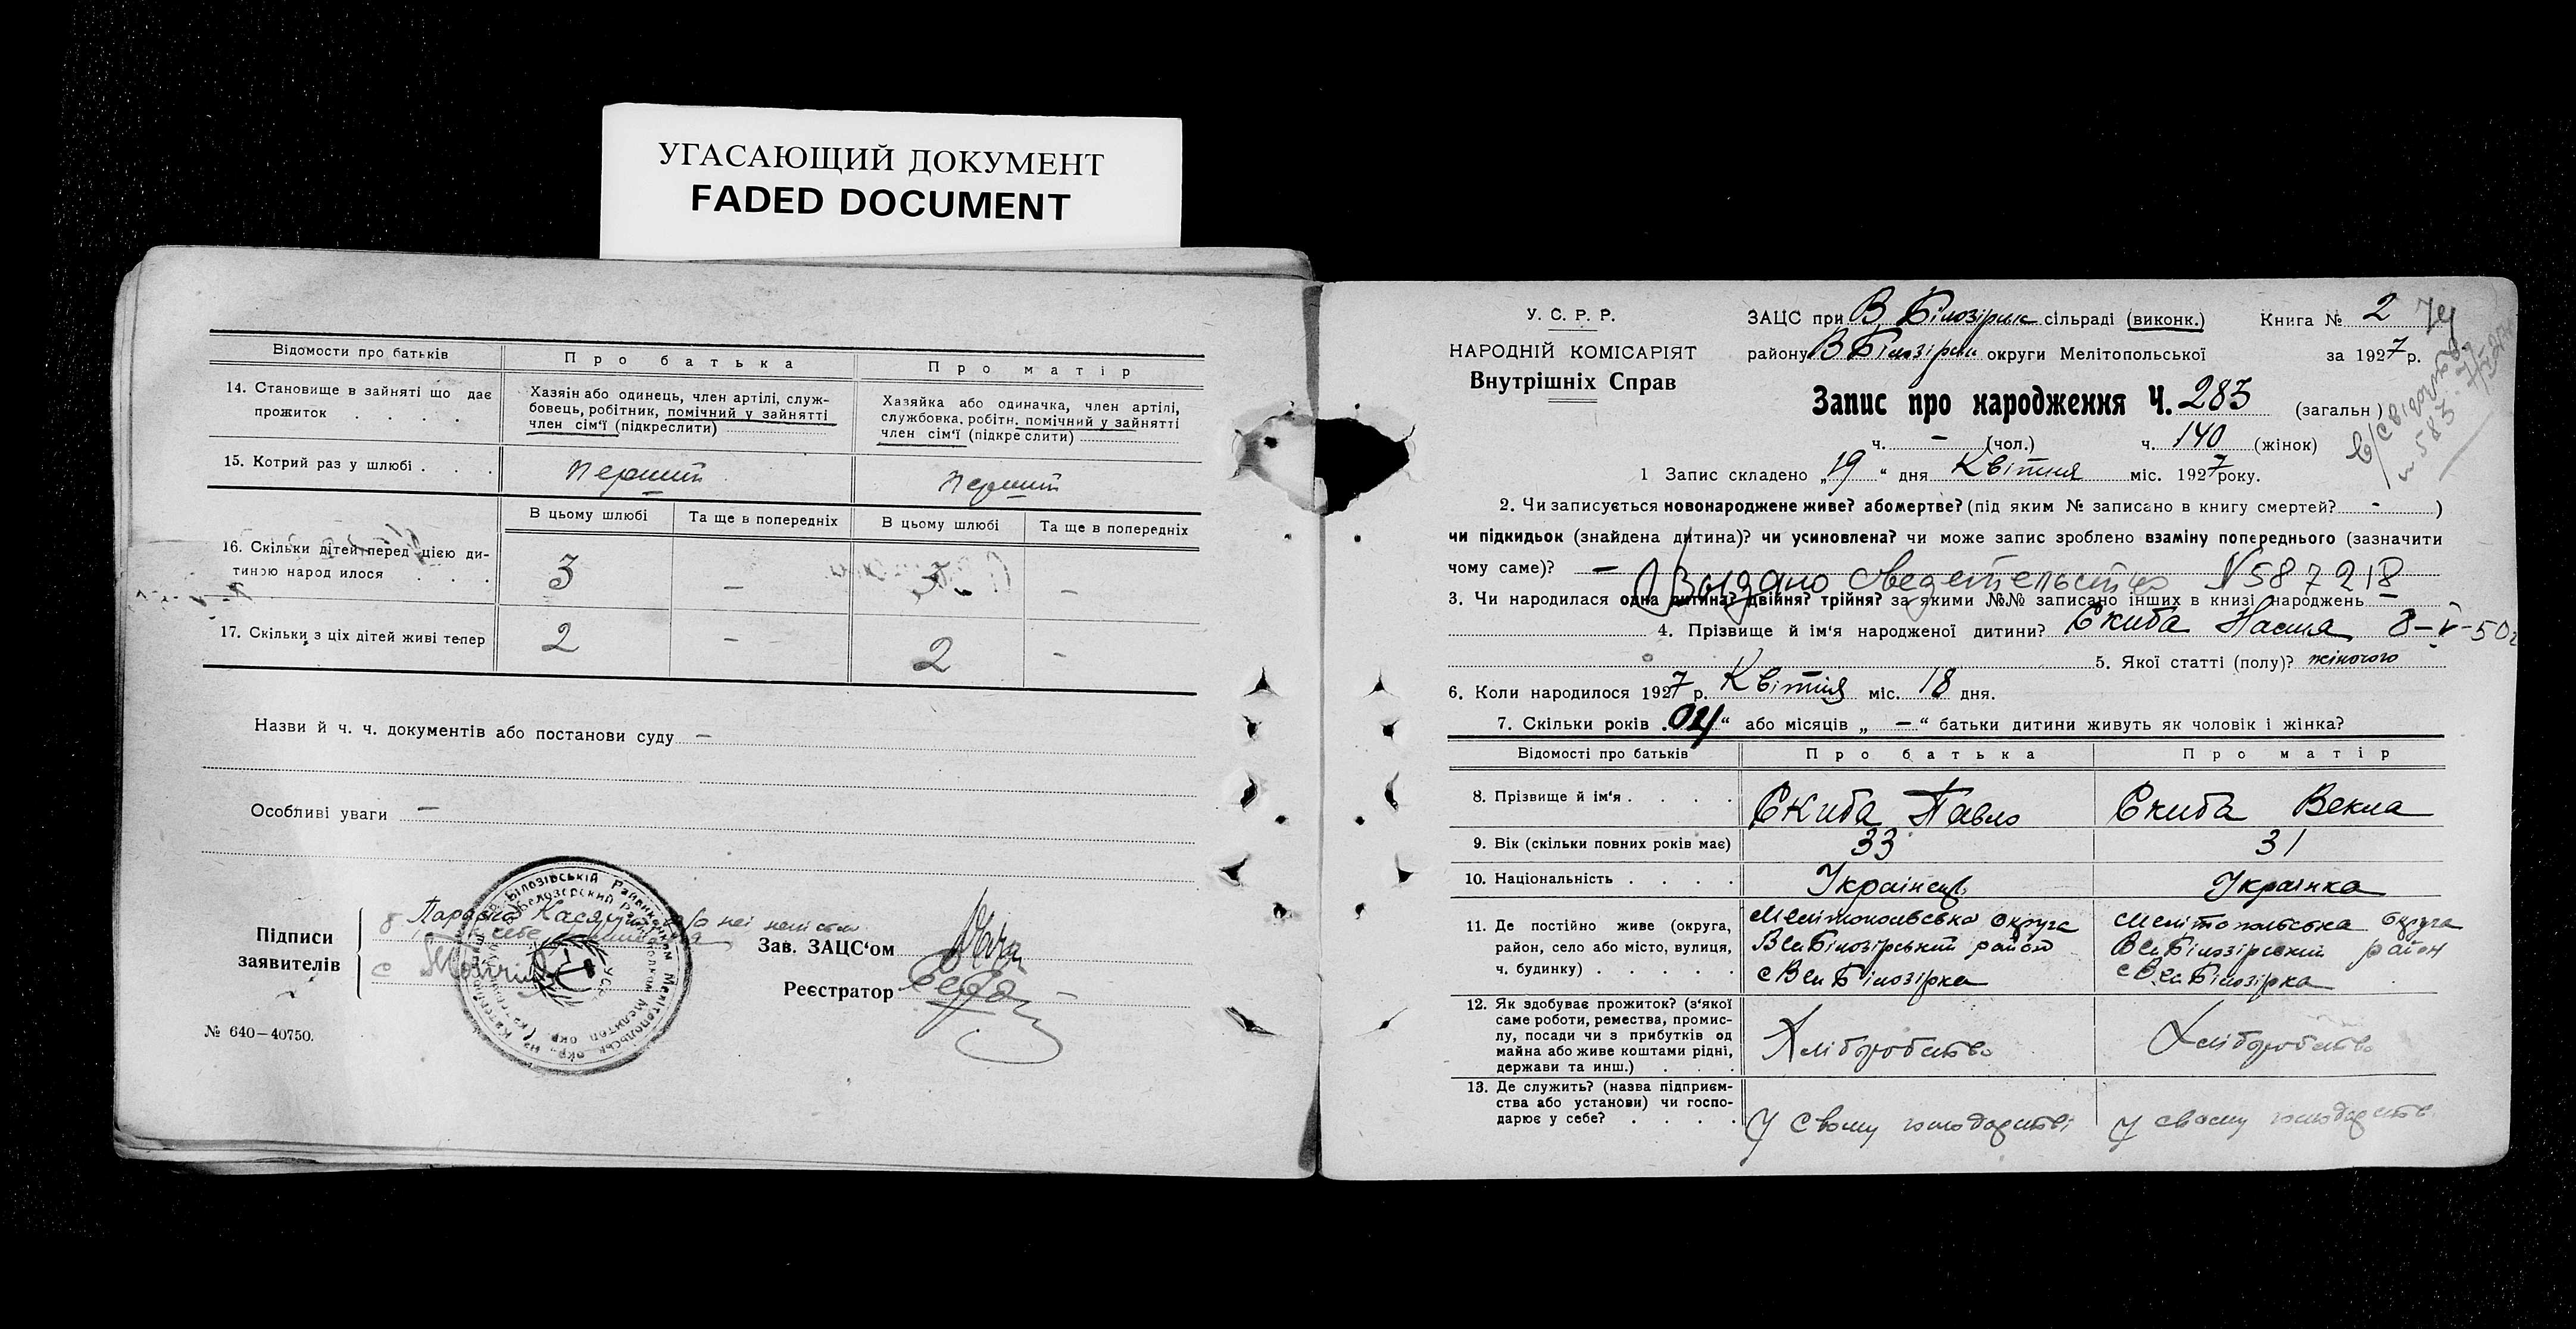 УГАСАЮЩИЙ ДОКУМЕНТ
FADED DOCUMENT
Відомости про батьків
Про батька
Про матір
14. Становище в зайняті що дає прожиток . . . .
Хазяін або одинець, член артілі, служ-
бовець, робітник, помічний у зайнятті
член сім'ї (підкреслити)
Хазяйка або одиначка, член артілі,
службовка, робітн. помічний у зайнятті
член сім'ї (підкреслити)
15. Котрий раз у шлюбі . . .
перший
перший
В цьому шлюбі
Та ще в попередніх
В цьому шлюбі
Та ще в попередніх
16. Скільки дітей перед цією ди-
тиною народилося . . .
3 - 3 -
17. Скільки з ціх дітей живі тепер
2 - 2 -
Назви й ч. ч. документів або постанови суду —
Особливі уваги —
Підписи
заявителів
Парасka
Зав. ЗАЦС'ом
Реєстратор
№ 640—40750.
У. С. Р. Р.
НАРОДНІЙ КОМІСАРІЯТ
Внутрішніх Справ
ЗАЦС при В. Білозірськ сільраді (виконк.)
Книга № 2
району В Білозірськ округи Мелітопольської
за 1927 р.
Запис про народження Ч. 283 (загальн)
ч. — (чол.) ч. 140 (жінок)
1 Запис складено „19“ дня Квітня міс. 1927 року.
2. Чи записується новонароджене живе? або мертве? (під яким № записано в книгу смертей? - )
чи підкидьок (знайдена дитина)? чи усиновлена? чи може запис зроблено взаміну попереднього (зазначити
чому саме)? —
Выдано сведетельство N 587218
3. Чи народилася одна дитина? двійня? трійня? за якими №№ записано інших в книзі народжень
4. Прізвище й ім'я народженої дитини? Скиба Настя 8-V-50г
5. Якої статті (полу)? жіночого
6. Коли народилося 1927 р. Квітня міс. 18 дня.
7. Скільки років „04“ або місяців „ — “ батьки дитини живуть як чоловік і жінка?
Відомості про батьків
Про батька
Про матір
8. Прізвище й ім'я . . . .
Скиба Павло
Скиба Векла
9. Вік (скільки повних років має)
33
31
10. Національність . . . .
Українец
Українка
11. Де постійно живе (округа,
район, село або місто, вулиця,
ч. будинку) . . . . .
Мелітопольська округа
Вел Білозірський район
с Вел Білозірка
Мелітопольська округа
Вел Білозірський район
с Вел Білозірка
12. Як здобуває прожиток? (з'якої
саме роботи, ремества, промис-
лу, посади чи з прибутків од
майна або живе коштами рідні,
держави та инш.) . . .
Хліборобство
Хліборобство
13. Де служить? (назва підприєм-
ства або установи) чи госпо-
дарює у себе? . . . .
У свому господарстві
У своему господарстві